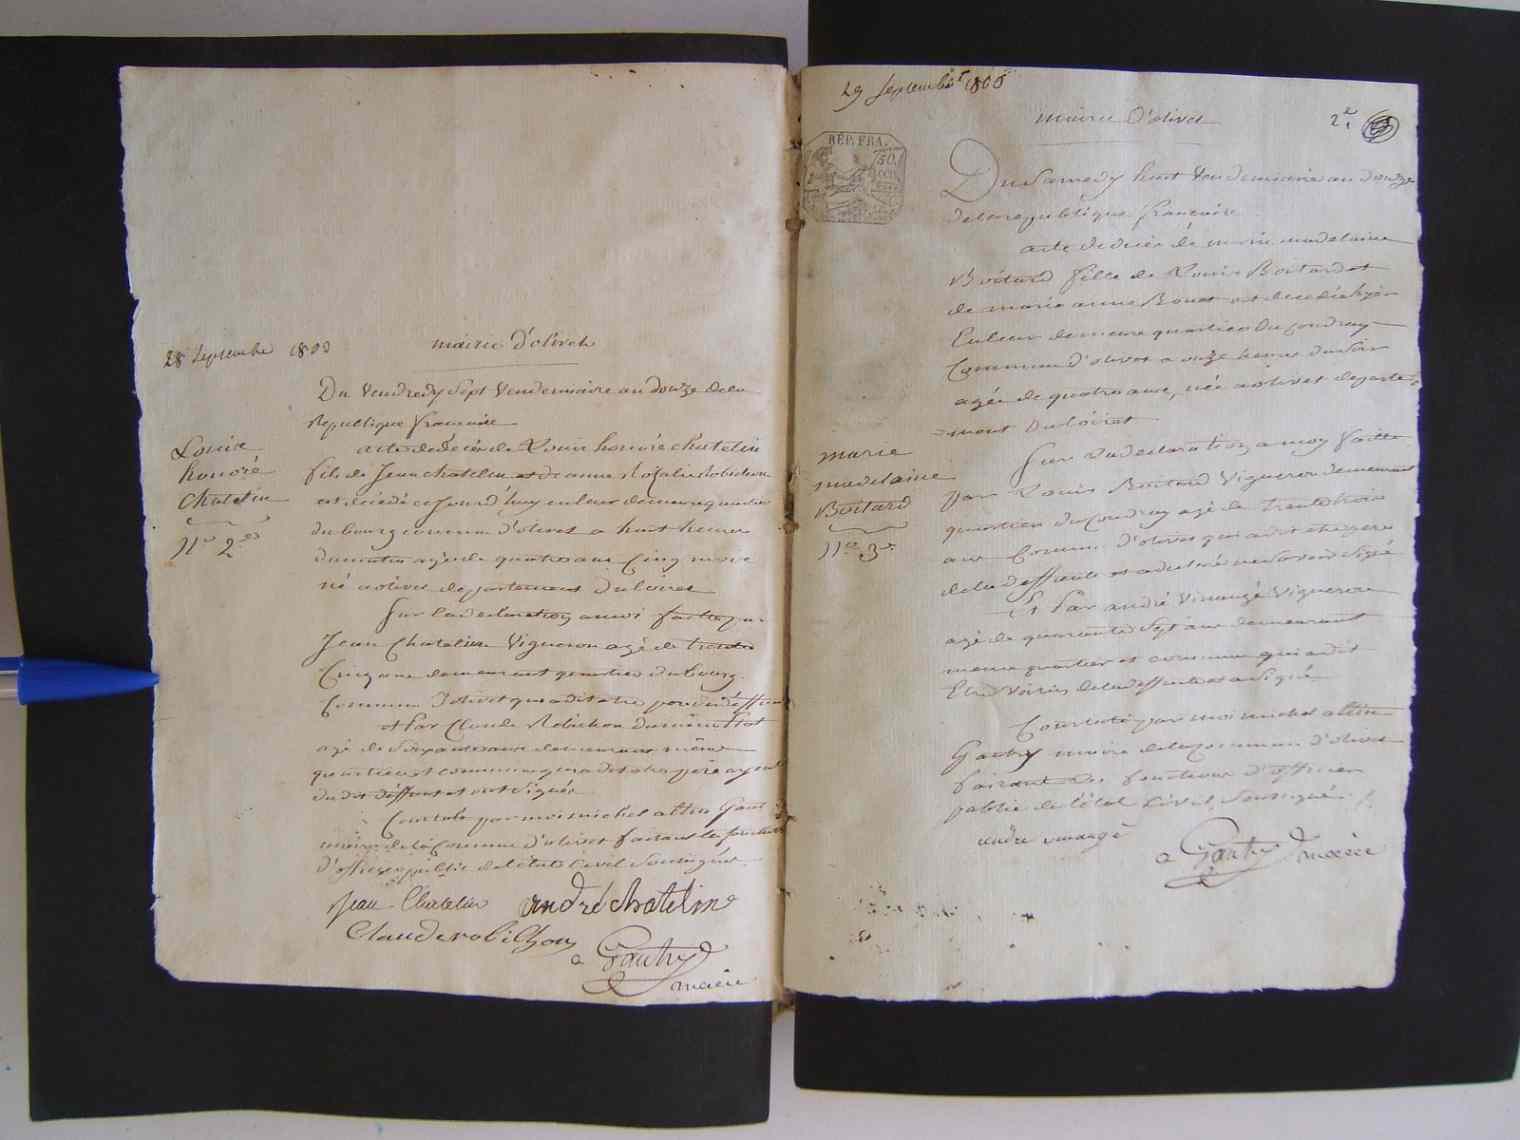 28 Septembre 1803
mairie d'olivet
Du Vendredy Sept Vendemiaire an douze dela
Republique francaise
Louis
honoré
Chatelin
N° 2
acte de decès de Louis honoré chatelin
fils de Jean chatelin et de anne Rozalie Robichon
est decedé ce Jourd'huy en leur demeure quartier
du bourg commune d'olivet a huit heures
du matin agé de quatre ans Cinq mois
né a olivet departement du loiret
Sur la declaration a moi faite par
Jean Chatelin Vigneron agé de trente
Cinq ans demeurant quartier du bourg
Commune d'olivet qui a dit etre pere du deffunt
et Par Claude Robichon
agé de Soixante ans demeurant même
quartier et commune qui a dit etre
du dit deffunt et ont Signés
Constaté par moi michel altin Gautry
maire de la Commune d'olivet faisant les fonctions
d'officier public de l'état Civil Soussigné
Jean Chatelin andré chatelin
Claude robichon
a Gautry
maire
29 Septembre 1803
mairie d'olivet
2e
REP. FRA.
50
CEN
Du Samedy huit Vendemiaire an douze
de la republique francaise
acte de decès de marie madelaine
Boitard fille de Louis Boitard et
de marie anne Bouet est decedée hyer
En leur demeure quartier du Coudray
Commune d'olivet a onze heures du Soir
agée de quatre ans, née a olivet departe
=ment du loiret
marie
madelaine
Boitard
N° 3
Sur la declaration a moy faitte
par Louis Boitard Vigneron demeurant
quartier du Coudray agé de trente trois
ans Comune d'olivet qui a dit etre pere
de la deffunte et a declaré ne Savoir Signé
Et Par andré Vinaugé Vigneron
agé de quarante Sept ans demeurant
meme quartier et commune qui a dit
Etre Voisin de la deffunte et a Signé
Constaté par moi michel altin
Gautry maire de la Commune d'olivet
faisant les fonctions d'officier
public de l'état Civil, Soussigné
andre vinaugé
a Gautry maire